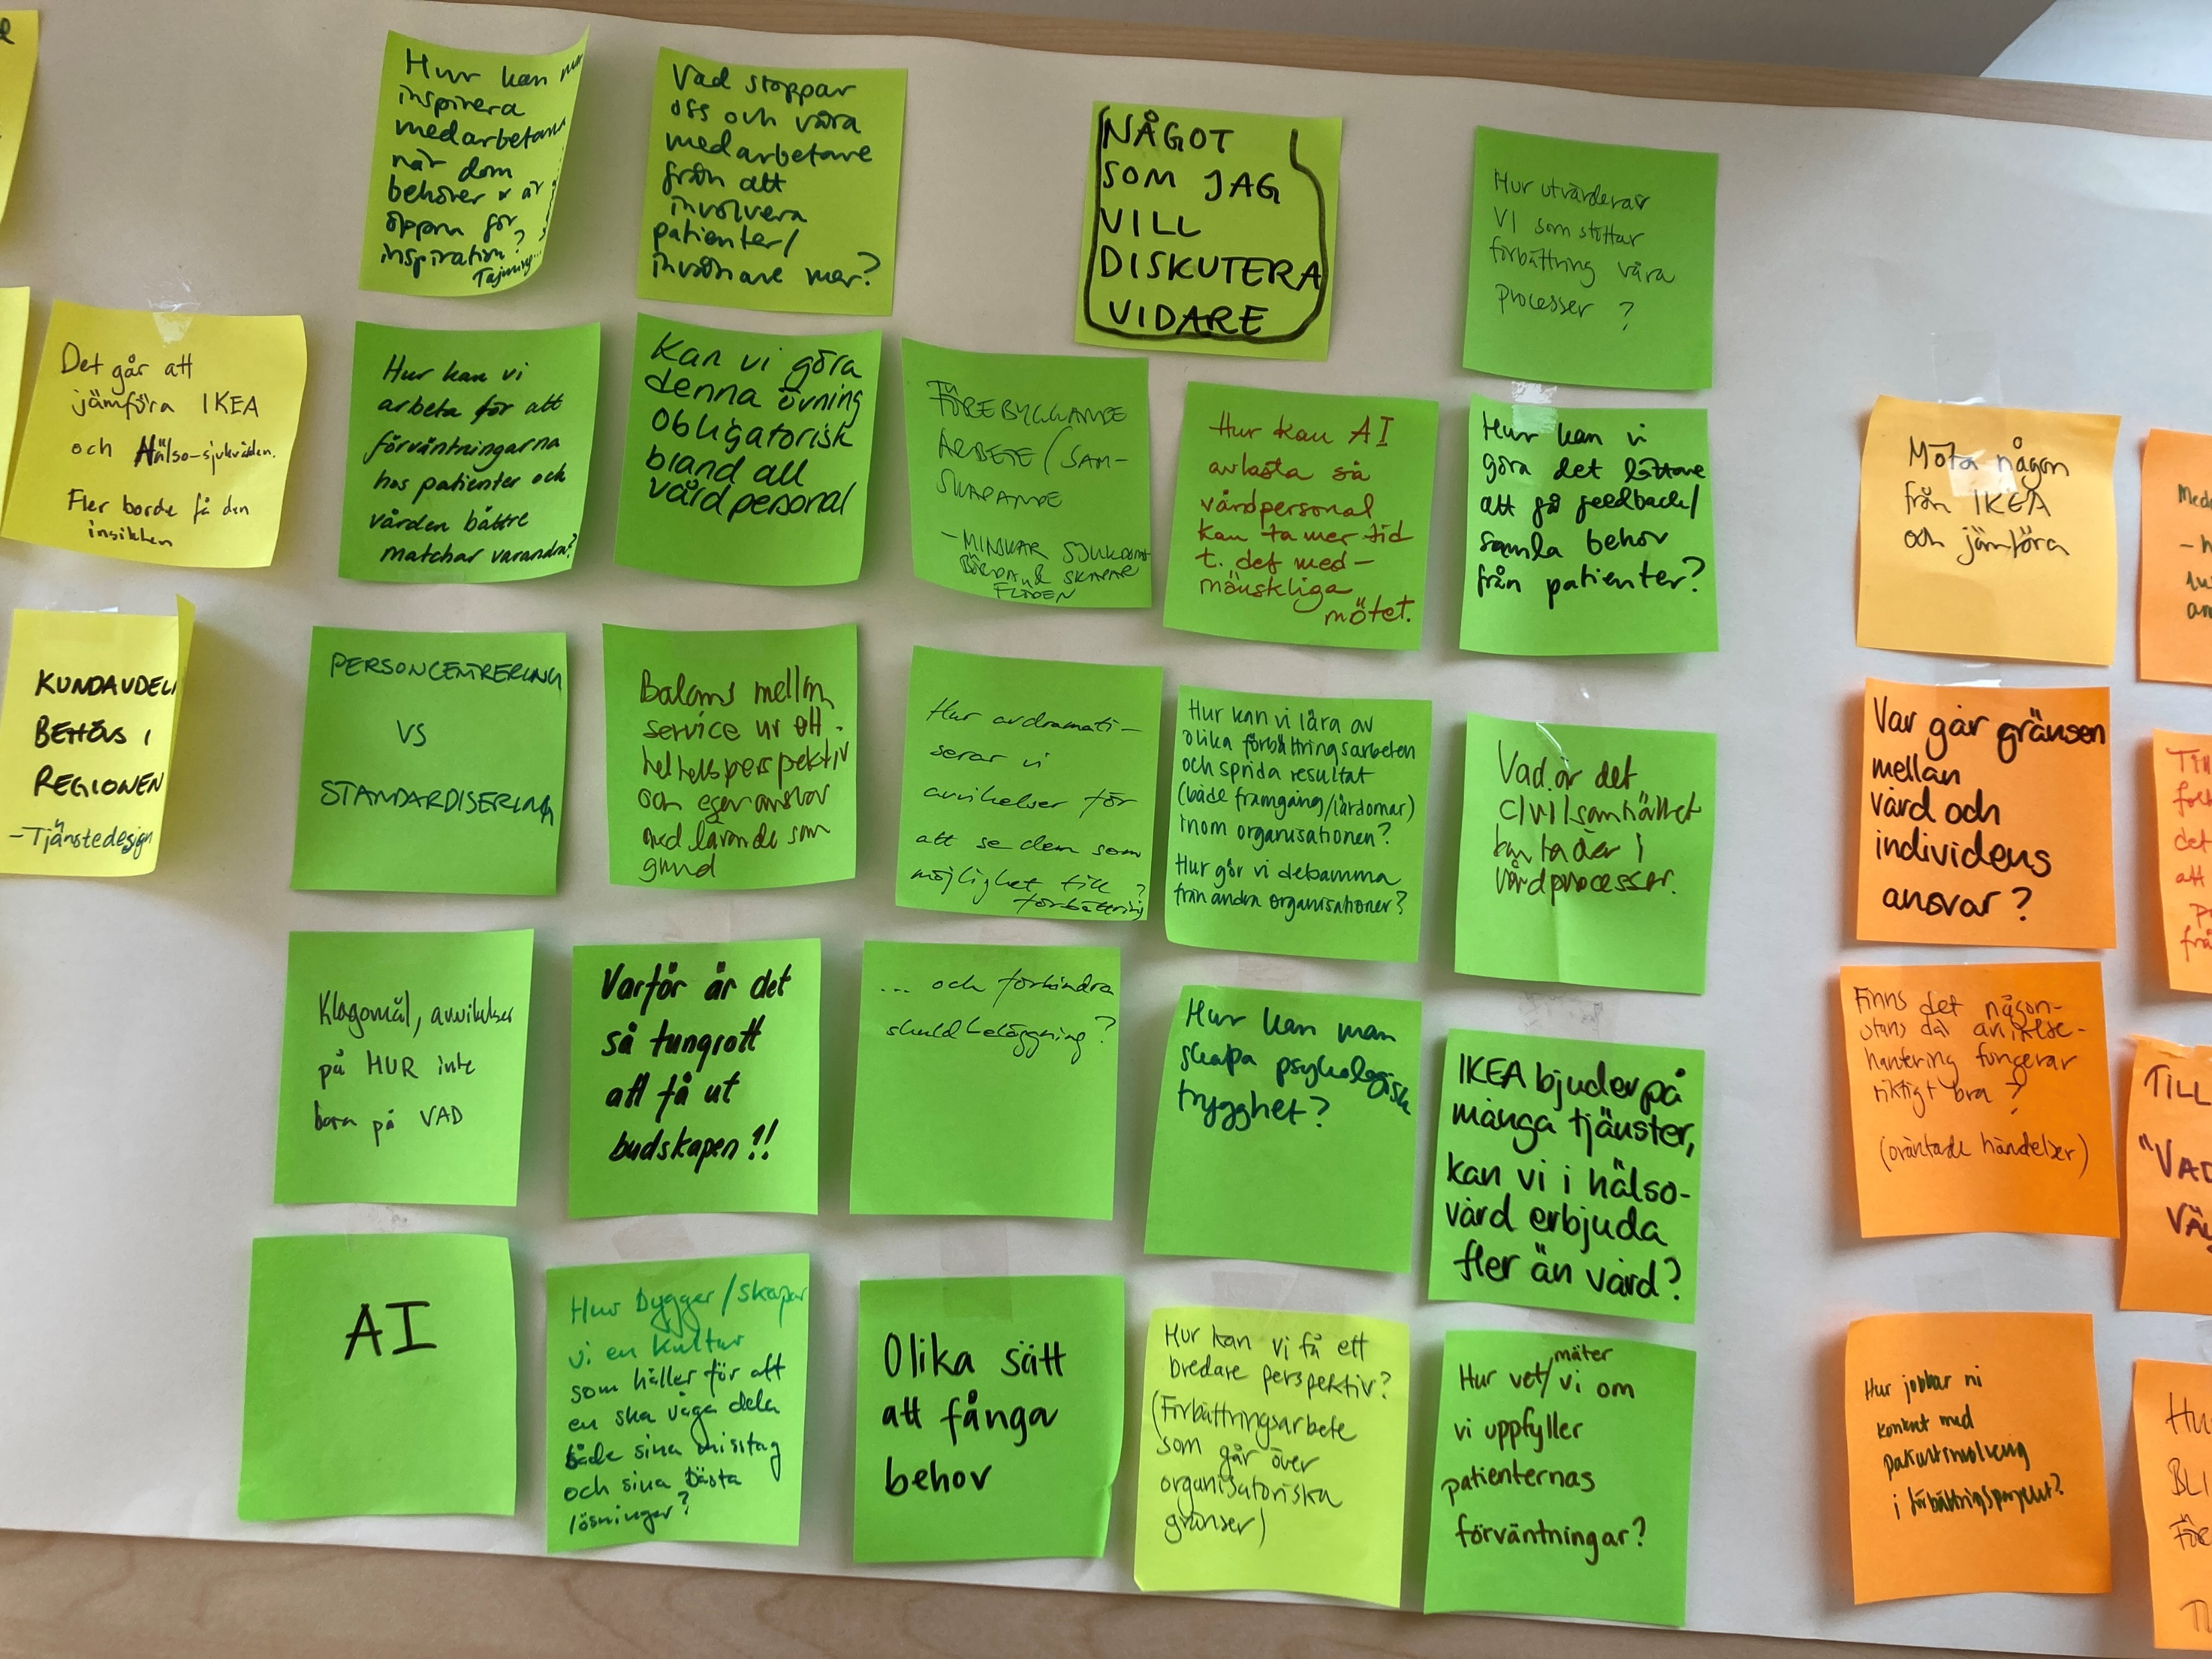 Hur kan
inspirera
medarbetarna
när dom
behöver & är
öppna för
inspiration?
Tajming...
Vad stoppar
oss och våra
medarbetare
från att
involvera
patienter/
invånare mer?
NÅGOT
SOM JAG
VILL
DISKUTERA
VIDARE
Hur utvärderar
VI som stöttar
förbättring våra
processer ?
Det går att
jämföra IKEA
och Hälso-sjukvården.
Fler borde få den
insikten
Hur kan vi
arbeta för att
förväntningarna
hos patienter och
vården bättre
matchar varandra?
Kan vi göra
denna övning
obligatorisk
bland all
vårdpersonal
FÖREBYGGANDE
ARBETE/SAM-
SKAPANDE
- MINSKAR SJUKDOMS
BÖRDAN & SKAPAR
FLÖDEN
Hur kan AI
avlasta så
vårdpersonal
kan ta mer tid
t. det med-
mänskliga
mötet.
Hur kan vi
göra det lättare
att få feedback/
samla behov
från patienter?
Möta någon
från IKEA
och jämföra
KUNDAVDELN
BEHÖVS I
REGIONEN
- Tjänstedesign
PERSONCENTRERING
VS
STANDARDISERING
Balans mellan
service ur ett
helhetsperspektiv
och eget ansvar
med lärande som
grund
Hur avdramati-
serar vi
avvikelser för
att se dem som
möjlighet till ?
förbättring
Hur kan vi lära av
olika förbättringsarbeten
och sprida resultat
(både framgång/lärdomar)
inom organisationen?
Hur gör vi detsamma
från andra organisationer?
Vad är det
civilsamhället
kan ta över i
vårdprocesser.
Var går gränsen
mellan
vård och
individens
ansvar?
Klagomål, avvikelser
på HUR inte
bara på VAD
Varför är det
så tungrott
att få ut
budskapen!!
... och förhindra
skuldbeläggning?
Hur kan man
skapa psykologisk
trygghet?
IKEA bjuder på
många tjänster,
kan vi i hälso-
vård erbjuda
fler än vård?
Finns det någon-
stans där avvikelse-
hantering fungerar
riktigt bra?
(oväntade händelser)
AI
Hur bygger/skapar
vi en kultur
som håller för att
en ska våga dela
både sina misstag
och sina bästa
lösningar?
Olika sätt
att fånga
behov
Hur kan vi få ett
bredare perspektiv?
(Förbättringsarbete
som går över
organisatoriska
gränser)
mäter
Hur vet/vi om
vi uppfyller
patienternas
förväntningar?
Hur jobbar ni
konkret med
patientinvolvering
i förbättringsprojekt?
TILL
"VAD
BLI